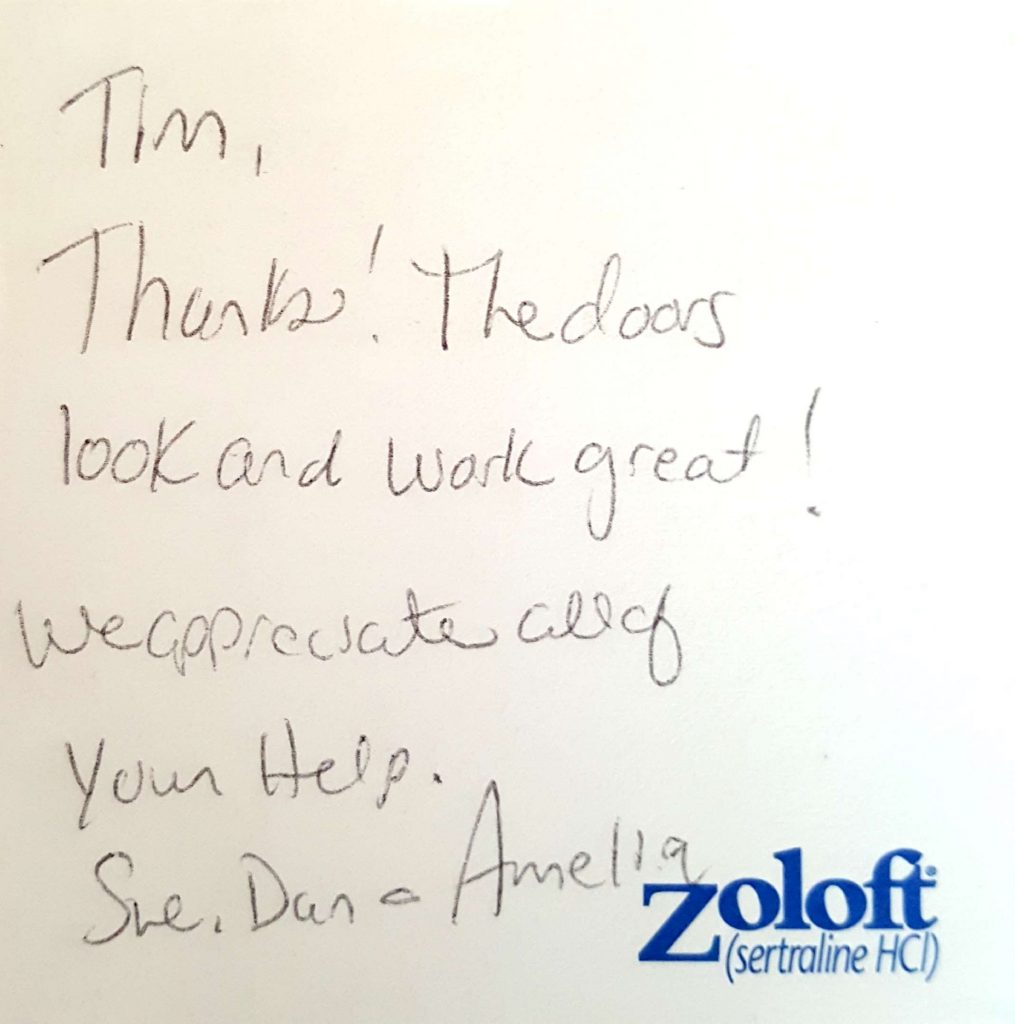 Tim,
Thanks! The doors
look and work great!
We appreciate all of
your Help.
Sue, Dan & Amelia
Zoloft®
(sertraline HCl)